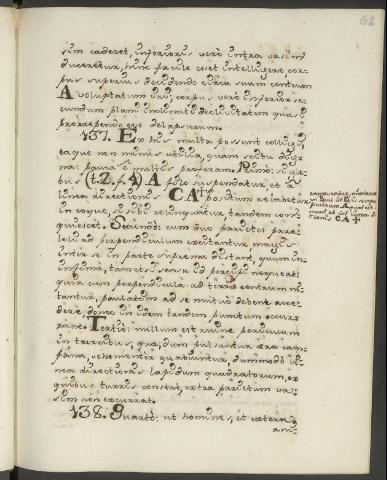 62
sim caderet, inferioris verò intra basim
duceretur, hinc facile est intelligere, cor-
pus superius decidendo circa suum centrum
A volutatum iri; corpus verò inferior se-
cundum plani inclinati declivitatem quasi
prorependo esse delapsurum.
137. Ex his multa possunt colligi,
eaque non minus utilia, quam scitu dig-
na: pauca è multis proferam. Primo: si glo-
bus (t.2. f. 4) A filo suspendatur, et a
linea directionis CA positum
in eoque, si sibi relinquatur, tandem con-
quiescet. Secundo: cum duo parietes para-
leli ad perpendiculum excitantur, magis
inter se in parte suprema distant, quam in
infima, tametsi sensu id percipi nequeat:
quia cum perpendicula ad terrae centrum ni-
tantur, paulatim ad se mutuo debent acce-
dere donec in idem tandem punctum occur-
rant. Tertio: nullum est ruinae periculum
in turribus, quae, dum pulsantur aera cam-
pana, vehementer quatiuntur, dummodo li-
nea directionis lapidum quadratorum, ex
quibus turris constat, extra parietum ba-
sim non excurrat.
138. Quarto: ut homines, et caetera
ani-